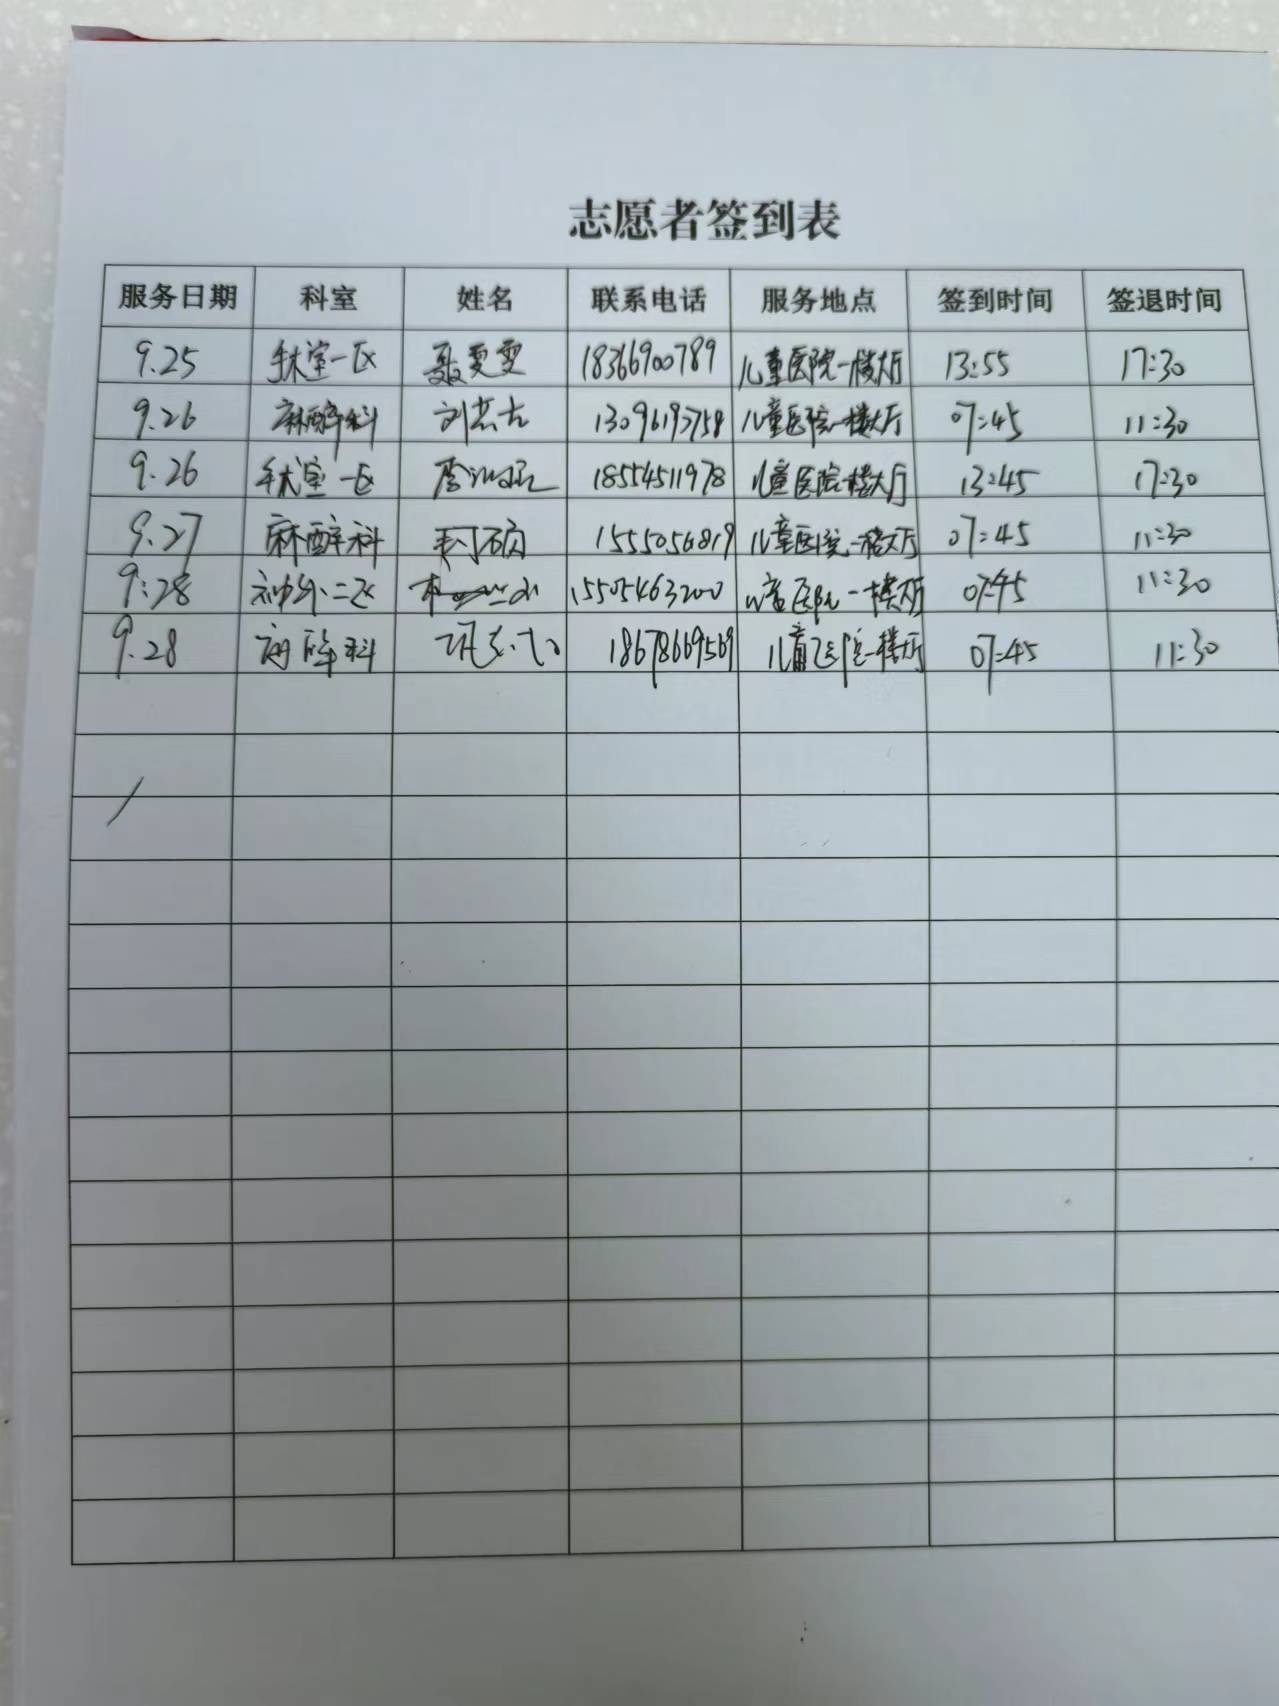 志愿者签到表
服务日期 科室 姓名 联系电话 服务地点 签到时间 签退时间
9.25 手术室一区 聂雯雯 18366900789 儿童医院一楼大厅 13:55 17:30
9.26 麻醉科 刘志 13096193758 儿童医院一楼大厅 07:45 11:30
9.26 手术室一区 18554511978 儿童医院一楼大厅 13:45 17:30
9.27 麻醉科 1555056819 儿童医院一楼大厅 07:45 11:30
9:28 神外二区 15505463200 儿童医院一楼大厅 07:45 11:30
9.28 科 18678669569 儿童医院一楼大厅 07:45 11:30